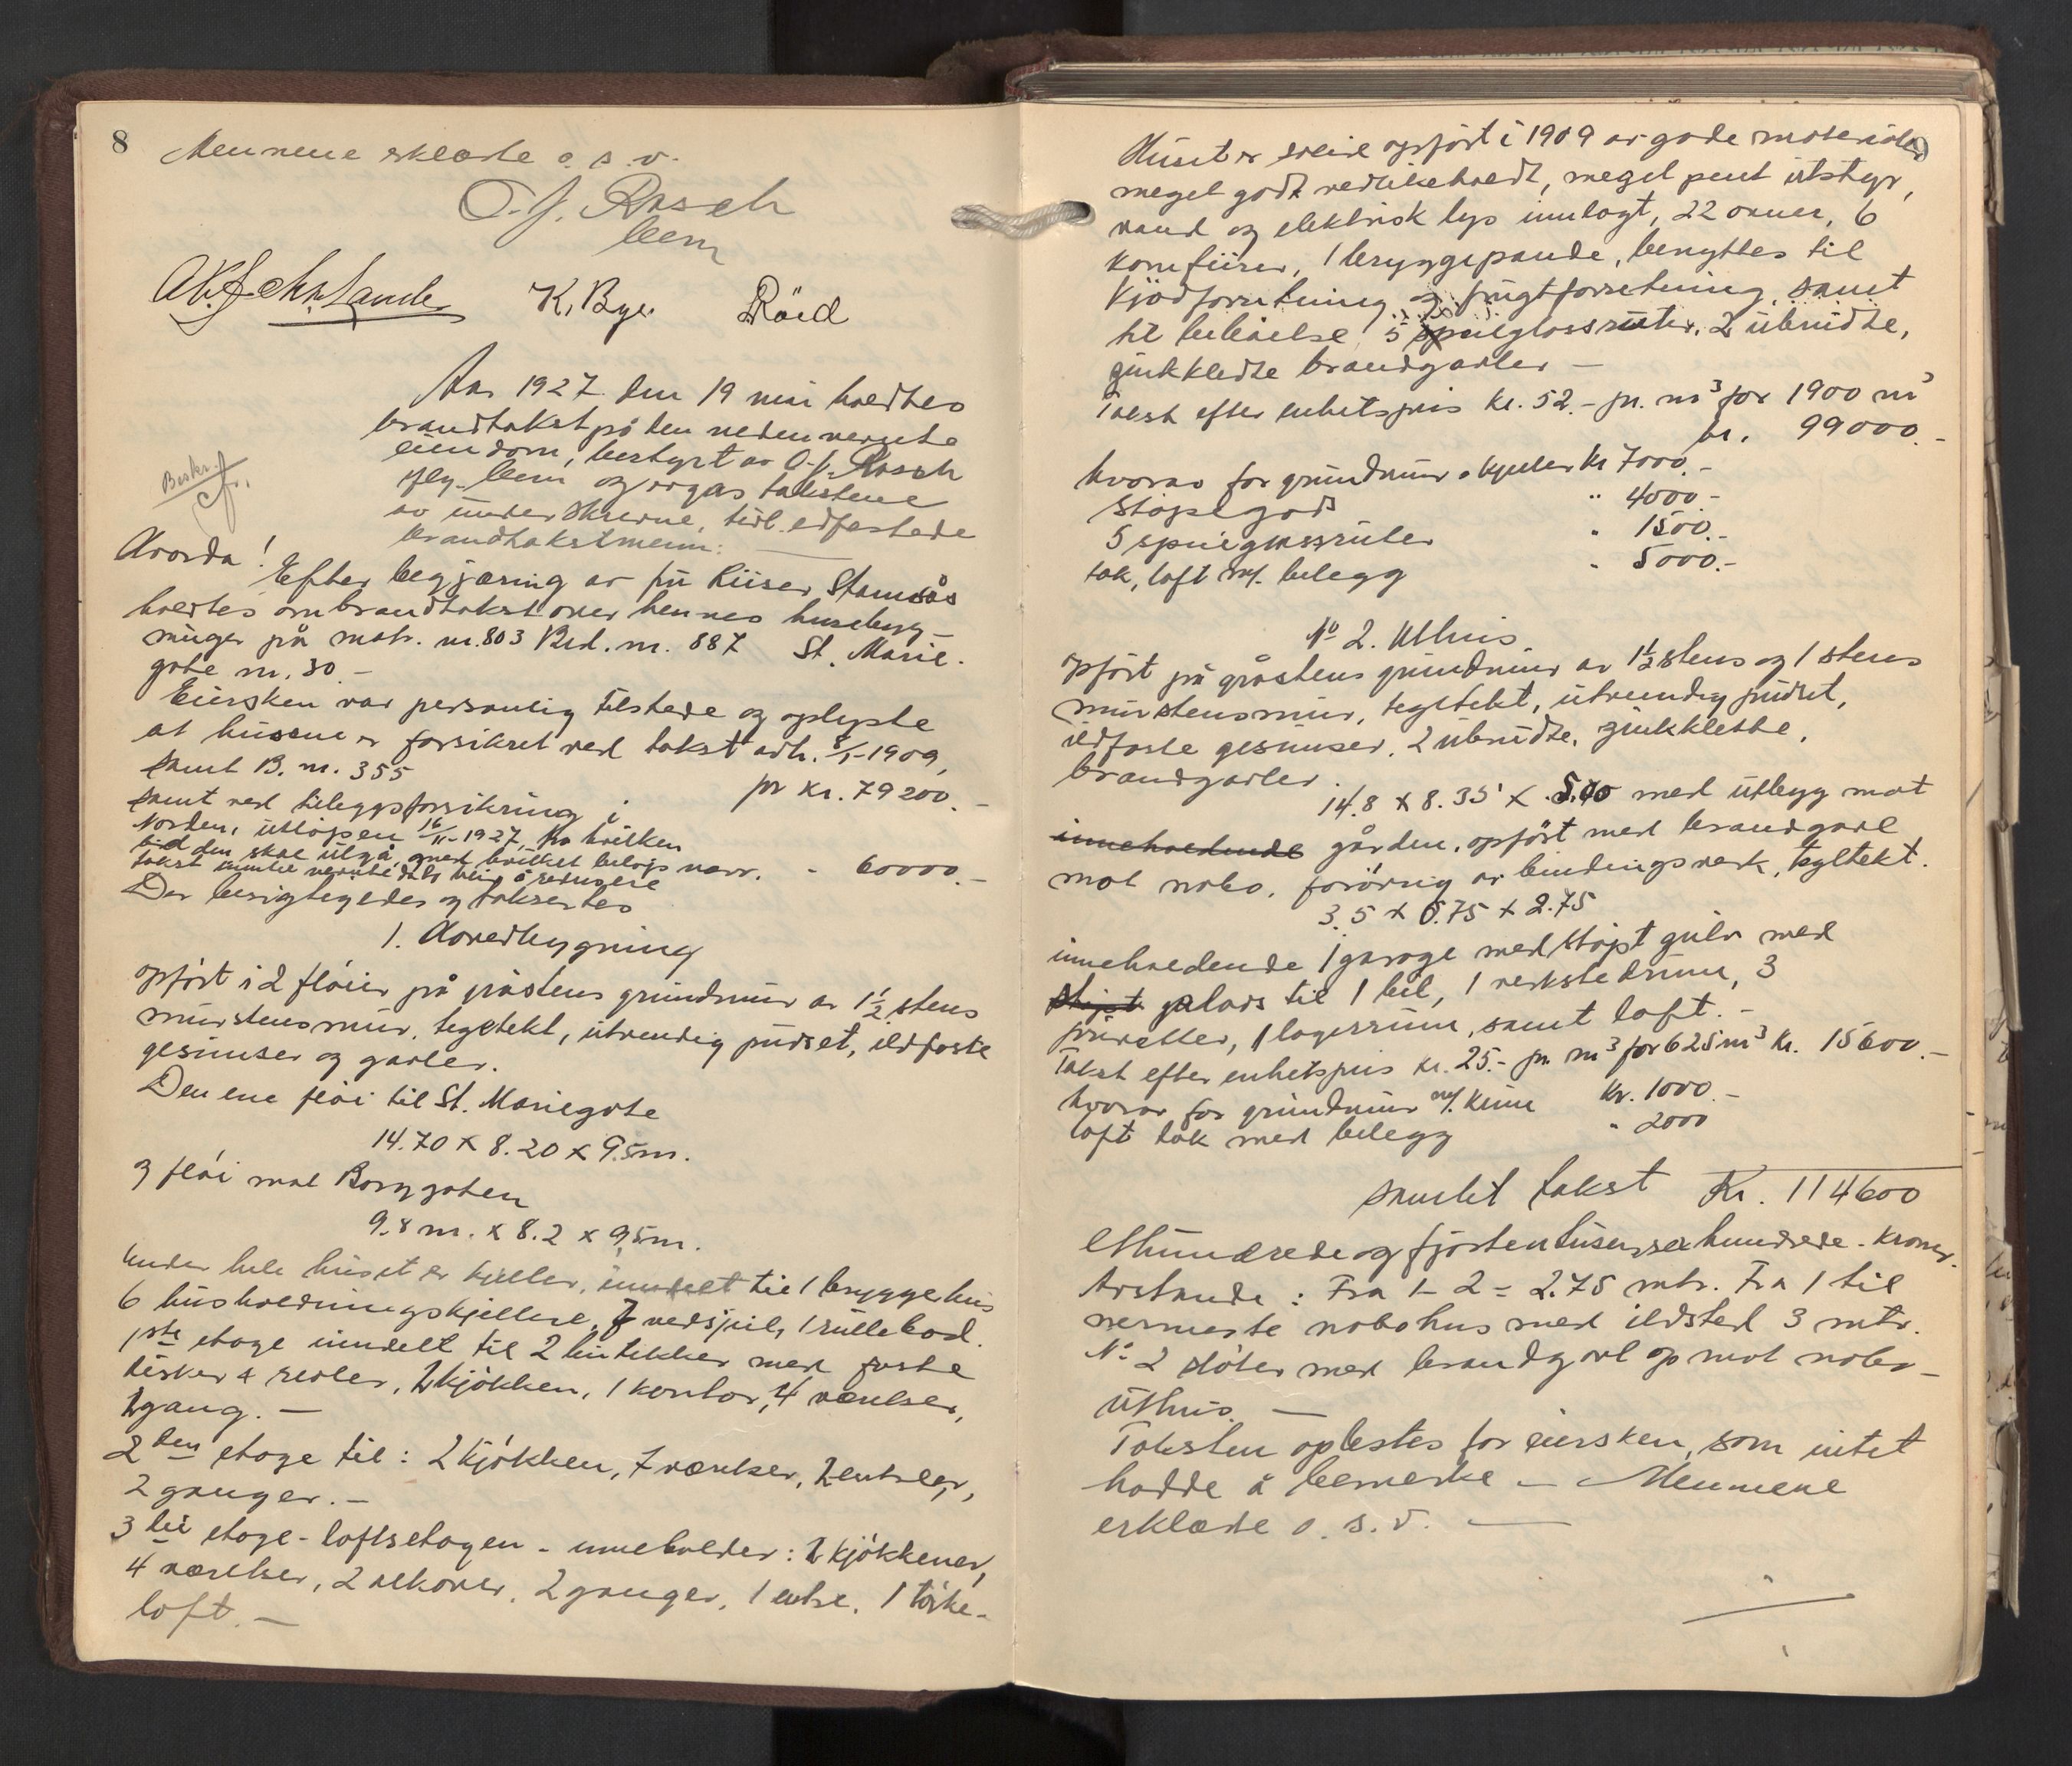 8
Mennene erklærte o. s. v.
O. J. Rasch
lem
K. Bye. Röed
Aar 1927 den 19 mai holdtes
brandtakst på den nedennevnte
eiendom, bestyrt av O. J. Rasch
som lem og avgas takstene
av underskrevne, tidl. edfæstede
brandtakstmenn:
Beskr.
cf.
Avorda!
Efter begjæring av fru Riiser, Stamsås
holdtes ombrandtakst over hennes husebyg-
ninger på matr. nr. 803 Brd. nr. 887 St. Marie-
gate nr. 30.-
Eiersken var personlig tilstede og oplyste
at husene er forsikret ved takst avh. 8/1-1909,
samt B. nr. 355 pr Kr. 79200.-
samt ved tileggsforsikring i
Norden, utløpen 16/11-1927, fra hvilken
tid den skal utgå, med hvilket beløp navr. " 60000.-
takst
Der besigtigedes og taksertes
1. Hovedbygning
opført i 2 fløier på gråstens grundmur av 1½ stens
murstensmur, tegltekt, utvendig pudset, ildfaste
gesimser og gavler.
Den ene fløi til St. Mariegate
14.70 x 8.20 x 9.5m.
og fløi mot Borggaten
9.8 m. x 8.2 x 9,5m.
Under hele huset er kjeller, inndelt til 1 bryggehus
6 husholdningskjellere, 7 vedskjul, 1 rullebod.
1ste etage inndelt til 2 butikker med faste
disker & reoler, 2 kjøkken, 1 kontor, 4 værelser,
2 gang.-
2den etage til: 2 kjøkken, 7 værelser, 2 entreer,
2 ganger.-
3die etage - loftsetagen - inneholder: 2 kjøkkener,
4 værelser, 2 alkover, 2 ganger, 1 entre, 1 tørke-
loft.-
Huset er solid opført i 1909 av gode materialer
meget godt vedlikeholdt, meget pent utstyr,
vand og elektrisk lys innlagt, 22 ovner, 6
komfürer, 1 bryggepande, benyttes til
kjødforretning og frugtforretning, samt
til beboelse. 5 speilglassruter. 2 ubrudte,
zinkkledte brandgavler -
Takst efter enhetspris kr. 52.- pr. m³ for 1900 m³
kr. 99000.-
hvorav for grundmur & kjeller Kr 7000.-
støpegods " 4000.-
5 speilglassruter " 1500.-
tak, loft m/. belegg " 5000.-
No 2. Uthus.
opført på gråstens grundmur av 1½ stens og 1 stens
murstensmur, tegltekt, utvendig pudset,
ildfaste gesimser, 2 ubrudte, zinkkledte,
brandgavler.
14.8 x 8.35 x 5.40 med utbygg mot
inneholdende gården, opført med brandgavl
mot nabo, forøvrig av bindingsverk, tegltekt.
3.5 x 6.75 x 2.75
inneholdende 1 garage med støpt gulv med
støpt plass til 1 bil, 1 verkstedrum, 3
priveter, 1 lagerrum, samt loft.-
Takst efter enhetspris kr. 25.- pr. m³ for 625m³ Kr. 15600.-
hvorav for grundmur m/. kum Kr. 1000.-
loft tak med belegg " 2000
samlet takst Kr. 114600
Etthundrede og fjortentusensexhundrede - kroner.
Avstande: Fra 1-2 = 2.75 mtr. Fra 1 til
nermeste nabohus med ildsted 3 mtr.
No 2 støter med brandgavl op mot nabo-
uthus. -
Taksten oplestes for eiersken, som intet
hadde å bemerke - Mennene
erklærte o. s. v. -